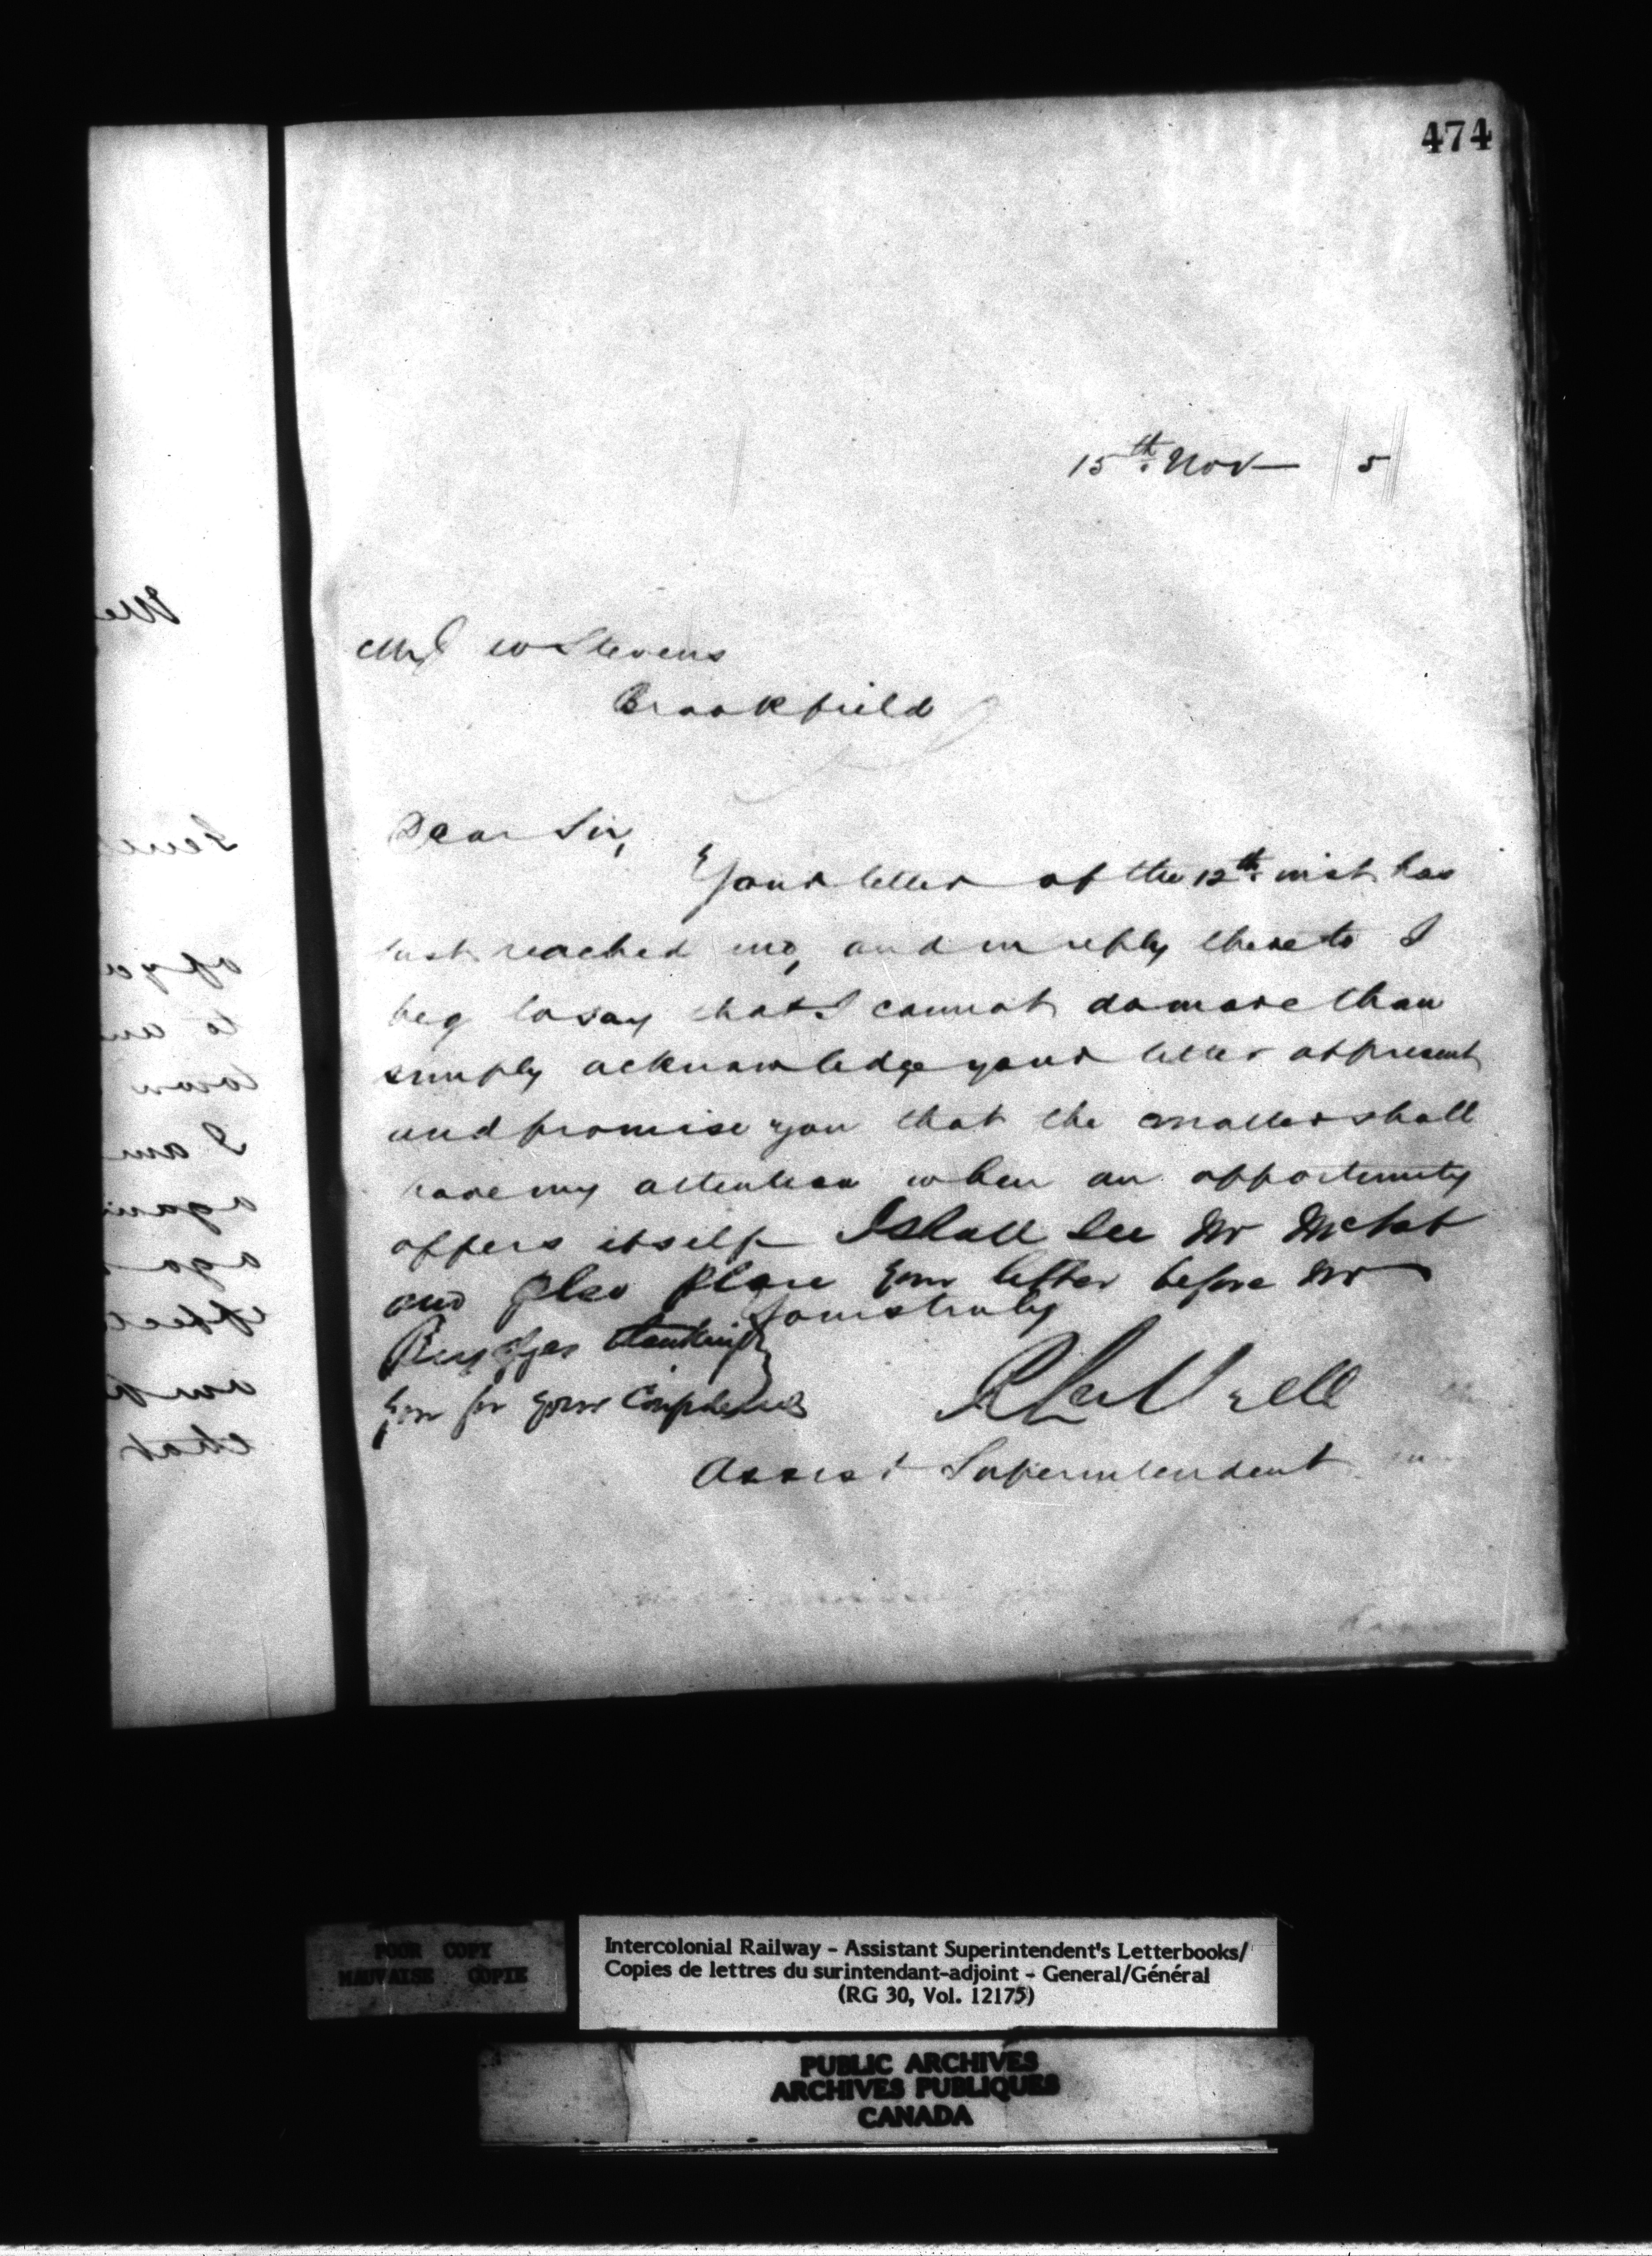 474
15th Nov 5
Mr J W Stevens
Brookfield
Dear Sir,
Your letter of the 12th inst has
just reached me, and in reply thereto I
beg to say that I cannot do more than
simply acknowledge your letter at present
and promise you that the matter shall
have my attention when an opportunity
offers itself I shall see Mr McNab
and also place your letter before Mr
Yours truly
thanking
you for your
Assist Superintendent
POOR COPY
MAUVAISE COPIE
Intercolonial Railway - Assistant Superintendent's Letterbooks/
Copies de lettres du surintendant-adjoint - General/Général
(RG 30, Vol. 12175)
PUBLIC ARCHIVES
ARCHIVES PUBLIQUES
CANADA